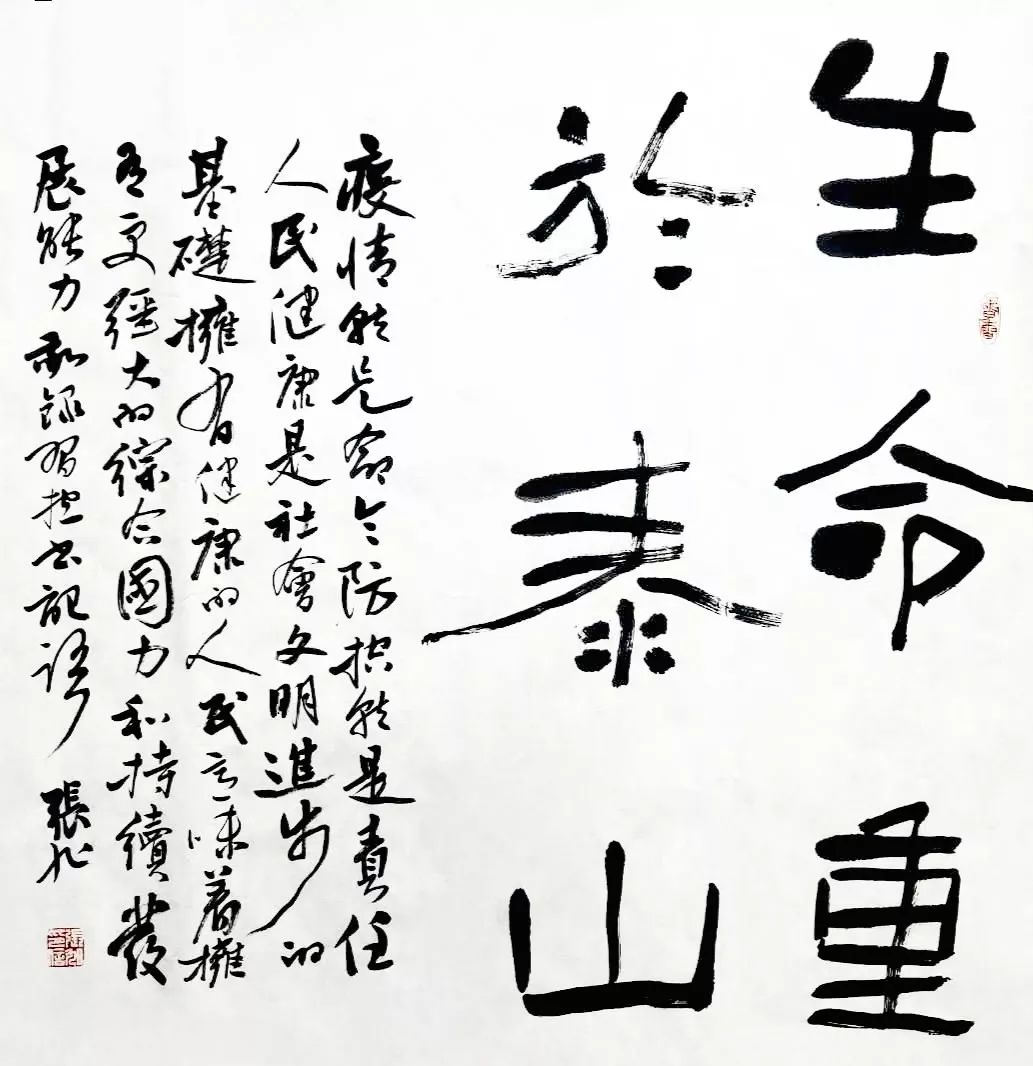 生命重
於泰山
疫情就是命令防控就是責任
人民健康是社會文明進步的
基礎擁有健康的人民意味着擁
有更强大的綜合國力和持續發
展能力 敬録習總書記語 張